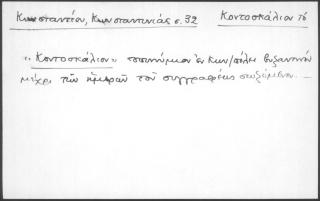 Κωνσταντίου, Κωνσταντινιάς σ. 32 Κοντοσκάλιον τό
«Κοντοσκάλιον» τοπωνύμιον ἐν Κων/πόλει βυζαντινόν
μέχρι τῶν ἡμερῶν τοῦ συγγραφέως σωζόμενον. —